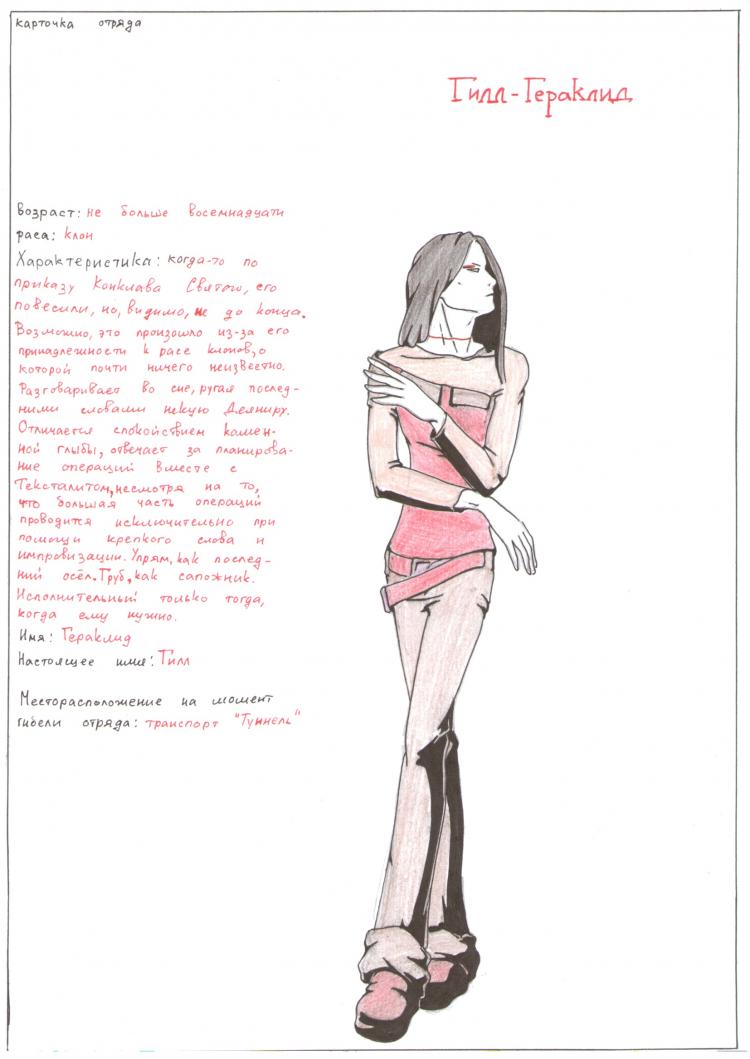 карточка отряда
Тилл-Гераклид
возраст: не больше восемнадцати
раса: клон
Характеристика: когда-то по
приказу Конклава Святого, его
повесили, но, видимо, не до конца.
Возможно, это произошло из-за его
принадлежности к расе клонов, о
которой почти ничего неизвестно.
Разговаривает во сне, ругая послед-
ними словами некую Деяниру.
Отличается спокойствием камен-
ной глыбы, отвечает за планирова-
ние операций вместе с
Тексталитом, несмотря на то,
что большая часть операций
проводится исключительно при
помощи крепкого слова и
импровизации. Упрям, как послед-
ний осёл. Груб, как сапожник.
Исполнительный только тогда,
когда ему нужно.
Имя: Гераклид
Настоящее имя: Тилл
Месторасположение на момент
гибели отряда: транспорт "Туннель"